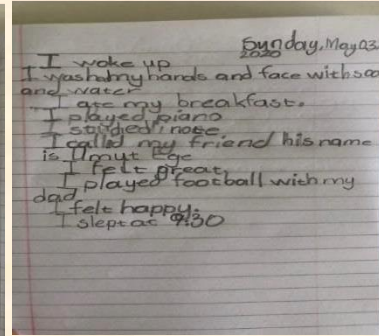 Sunday, May 03
2020
I woke up
I washd my hands and face with soo
and water
I ate my breakfast.
I played piano
I studied note.
I called my friend his name
is Umut Ege
I felt great
I played football with my
dad
I felt happy.
I slept at 9:30